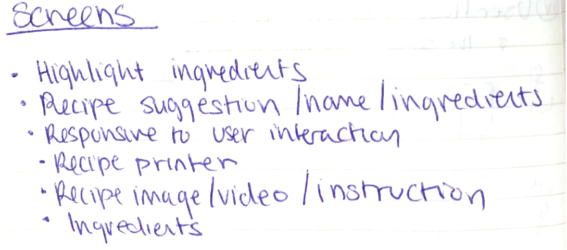 Screens
• Highlight ingredients
• Recipe suggestion /name/ingredients
• Responsive to user interaction
• Recipe printer
• Recipe image/video/instruction
• Ingredients